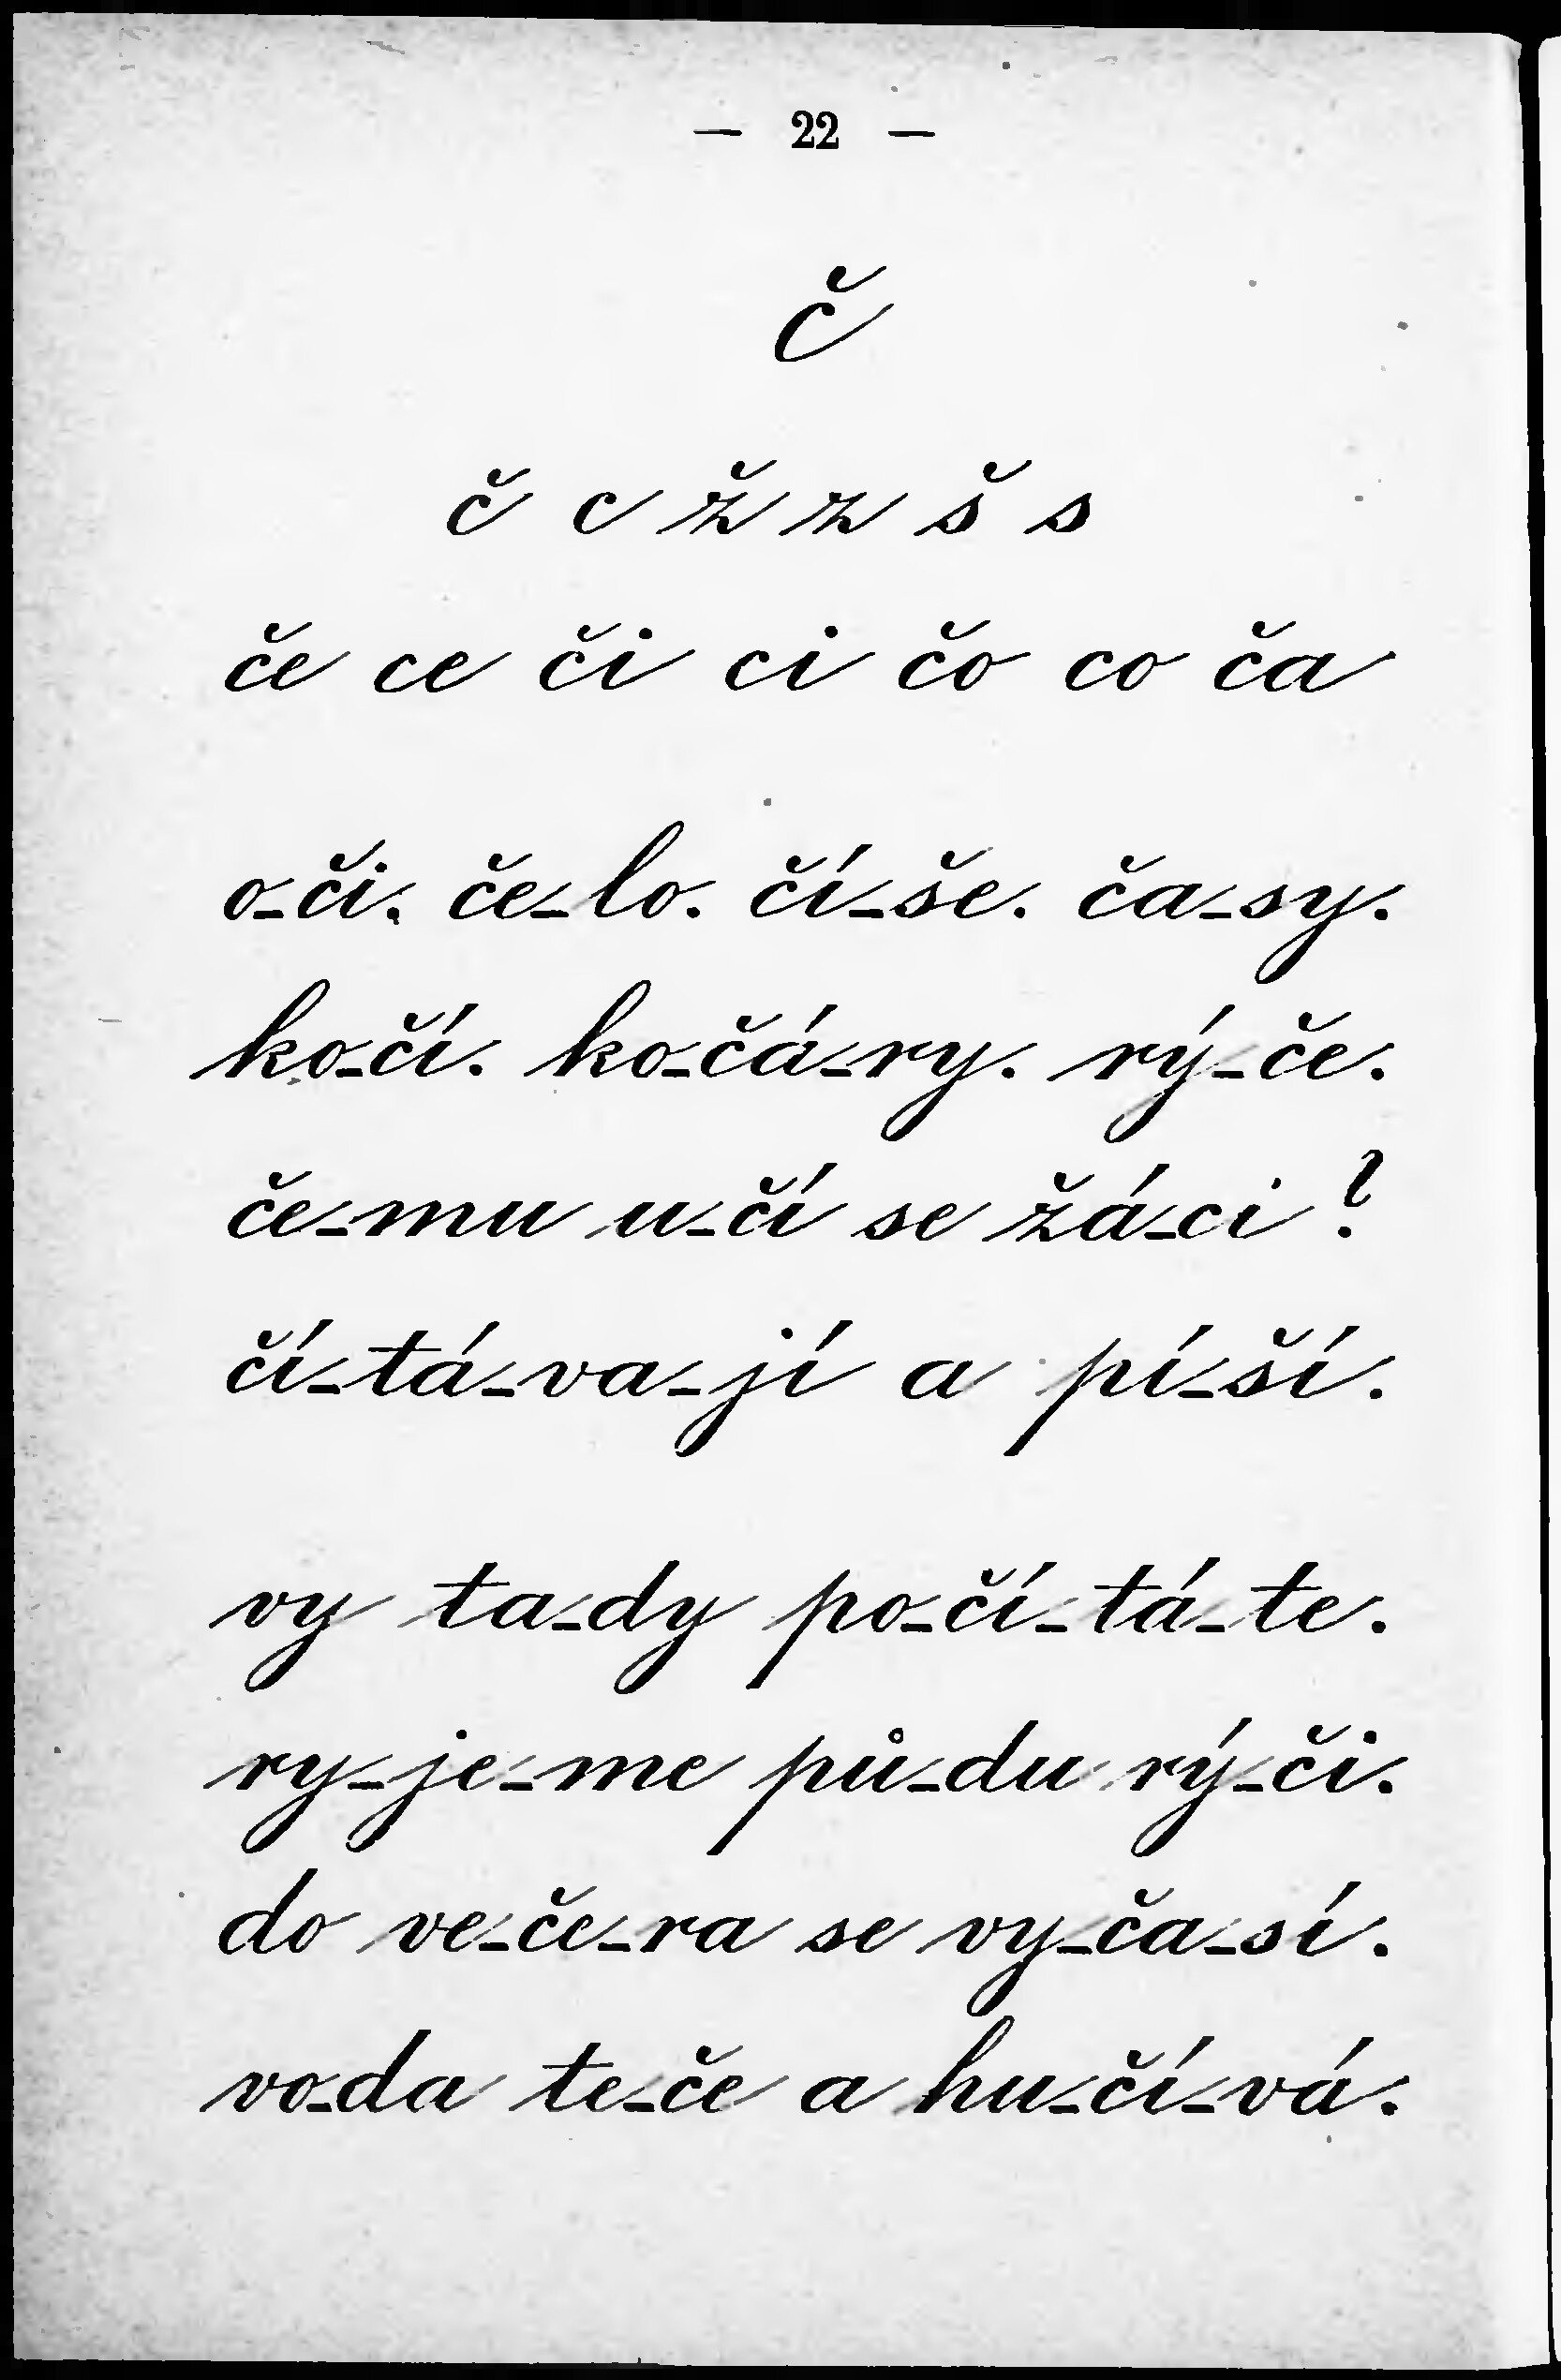 — 22 —
č
č c ž z š s
če ce či ci čo co ča
o-či. če-lo. čí-še. ča-sy.
ko-čí. ko-čá-ry. rý-če.
če-mu u-čí se žá-ci?
čí-tá-va-jí a pí-ší.
vy ta-dy po-čí-tá-te.
ry-je-me pů-du rý-či.
do ve-če-ra se vy-ča-sí.
vo-da te-če a hu-čí-vá.